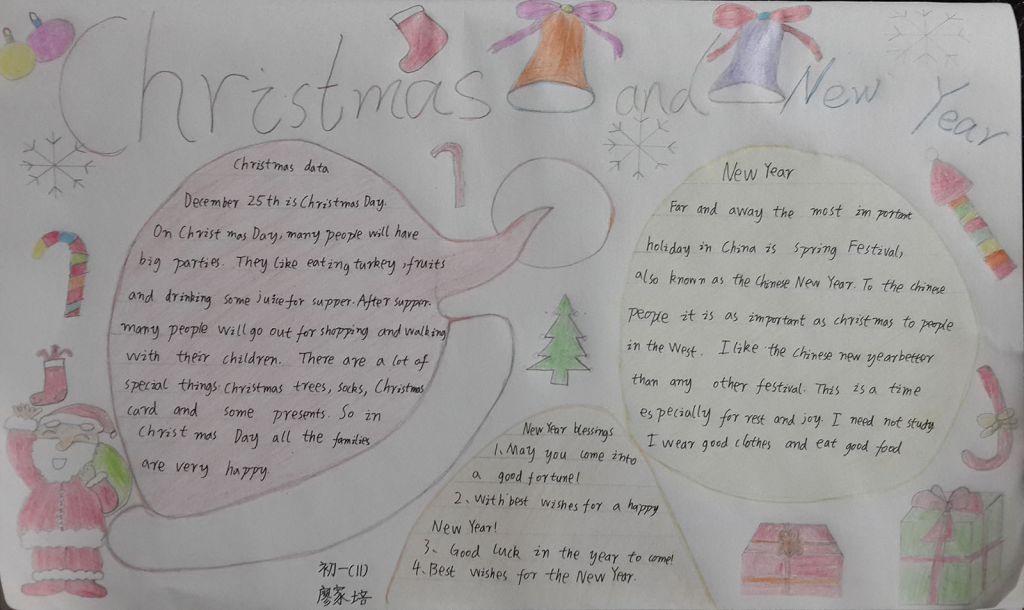 Christmas and New Year
Christmas data
December 25th is Christmas Day.
On Christmas Day, many people will have
big parties. They like eating turkey, fruits
and drinking some juice for supper. After supper.
many people will go out for shopping and walking
with their children. There are a lot of
special things: Christmas trees, socks, Christmas
card and some presents. So in
Christmas Day all the families
are very happy.
New Year
Far and away the most important
holiday in China is spring Festival,
also known as the Chinese New Year. To the chinese
people it is as important as christmas to people
in the West. I like the chinese new year better
than any other festival. This is a time
especially for rest and joy. I need not study.
I wear good clothes and eat good food
New Year blessings
1、May you come into
a good fortune!
2、With best wishes for a happy
New Year!
3、Good luck in the year to come!
4、Best wishes for the New Year.
初一(11)
廖家培